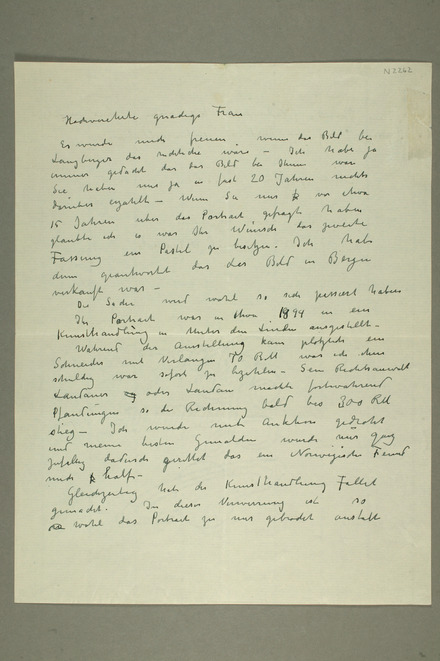 N 2262
Hochverehrte gnädige Frau
Es würde mich freuen wenn das Bild bei
das richtiche wäre – Ich habe ja
immer gedacht das das Bild bei Ihnen war
Sie haben mir ja in fast 20 Jahren nichts
darüber erzählt – Wenn Sie mir vor etwa
15 Jahren über das Portrait gefragt haben
glaubte ich es war Ihr Wunsch das zweite
Fassung ein Pastel zu besitzen. Ich habe
dann geantwortet das das Bild in Bergen
verkauft war –
Die Sache wird wohl so sich passiert haben
Ihr Portrait war in etwa 1894 in ein
Kunsthandlung in Unter den Linden ausgestellt –
Während der Ausstellung kam plötzlich ein
Schneider mit Verlangen 70 RM was ich ihm
schuldig war sofort zu bezahlen – Sein Rechtsanwalt
Landauer oder Landau machte fortwährend
Pfändungen so die Rechnung bald bis 300 RM
stieg – Ich wurde mit Auktion gedroht
und meine besten Gemälden wurde nur ganz
zufällig dadurch gerettet das ein Norwegische Freund
mich half –
Gleichzeitig hat die Kunsthandlung Fallit
gemacht. In dieser Verwirrung ist so
wohl das Portrait zu mir gebracht anstatt